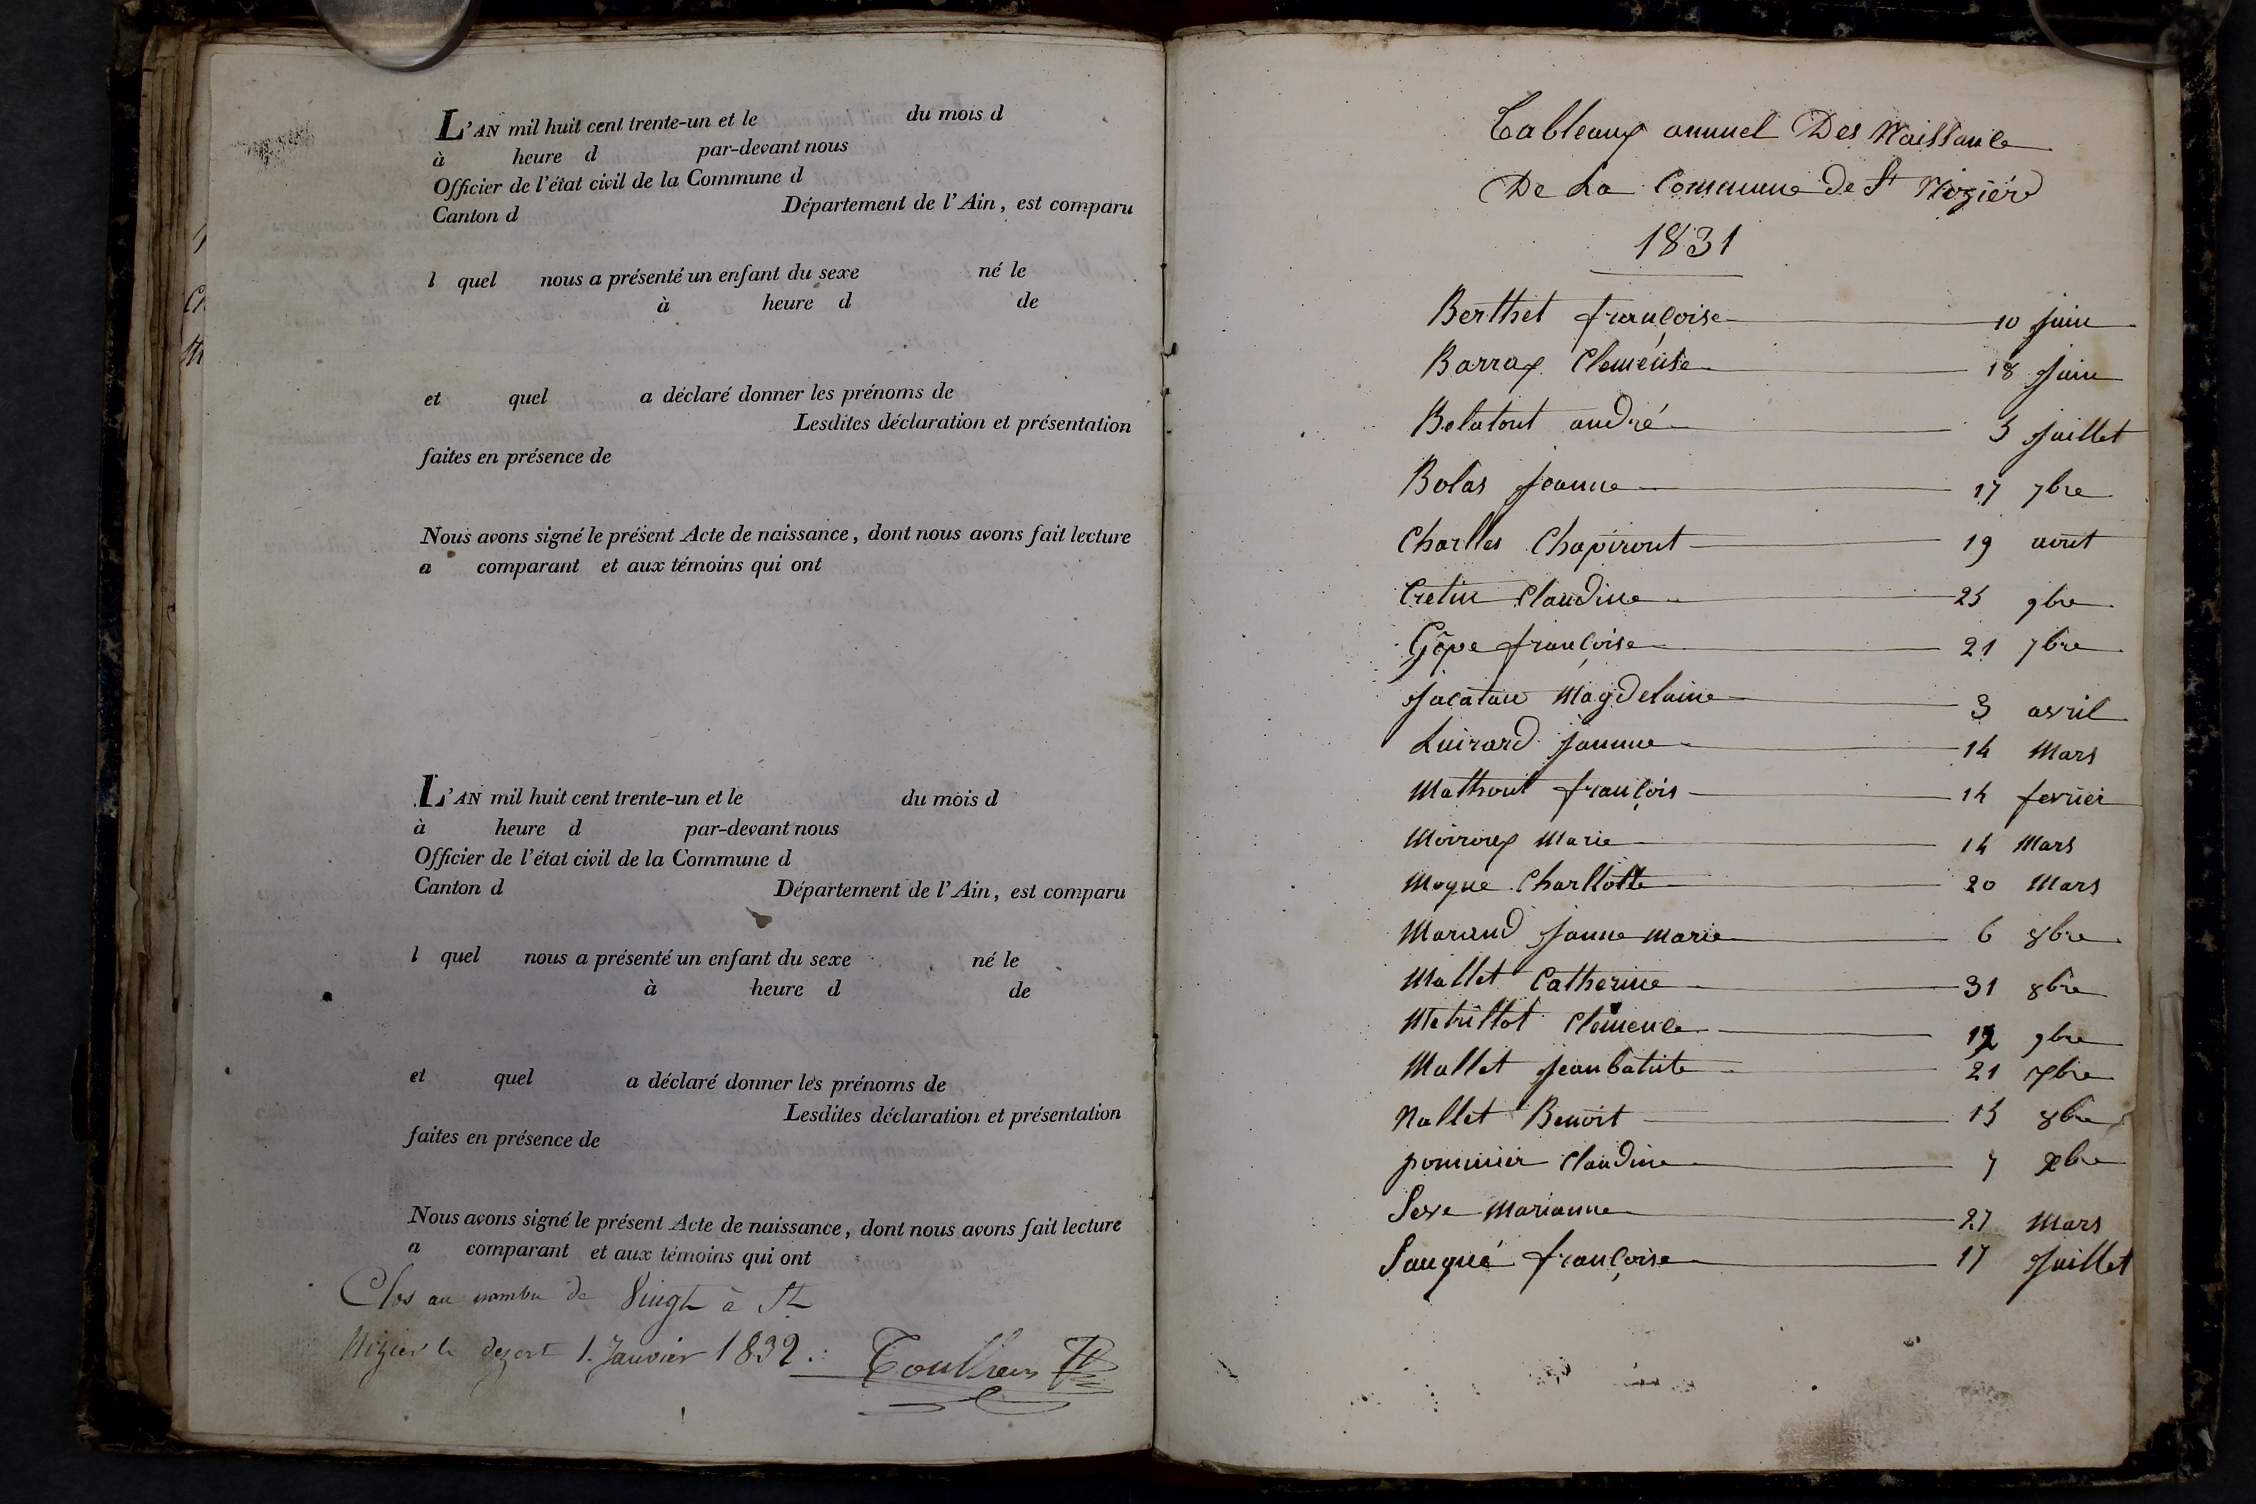 L'AN mil huit cent trente-un et le du mois d
à heure d par-devant nous
Officier de l'état civil de la Commune d
Canton d Département de l'Ain, est comparu
l quel nous a présenté un enfant du sexe né le
à heure d de
et quel a déclaré donner les prénoms de
Lesdites déclaration et présentation
faites en présence de
Nous avons signé le présent Acte de naissance, dont nous avons fait lecture
a comparant et aux témoins qui ont
L'AN mil huit cent trente-un et le du mois d
à heure d par-devant nous
Officier de l'état civil de la Commune d
Canton d Département de l'Ain, est comparu
l quel nous a présenté un enfant du sexe né le
à heure d de
et quel a déclaré donner les prénoms de
Lesdites déclaration et présentation
faites en présence de
Nous avons signé le présent Acte de naissance, dont nous avons fait lecture
a comparant et aux témoins qui ont
Clos au nombre de Vingt à St
Nizier le dezert 1. Janvier 1832.
Tableaux annuel Des Naissance
De La Commune de St Niziéré
1831
Berthet françoise 10 Juin
Barrax Clemense 18 Juin
Belatout andré 5 Juillet
Bolas Jeanne 17 7bre
Charlles Chapiront 19 aout
Cretin Claudine 25 9bre
Gope françoise 21 7bre
Jacatau Magdelaine 3 avril
Luirard Janne 14 Mars
Mathout françois 14 fevrier
Moiroux Marie 14 Mars
Moyne Charllotte 20 Mars
Morand Janne marie 6 8bre
Mallet Catherine 31 8bre
Metrillot Clemence 12 9bre
Mallet Jean batiste 21 bre
Nallet Benoit 15 8bre
pommier Claudine 7 Xbre
Seve Marianne 27 Mars
Saugué françoise 17 Juillet